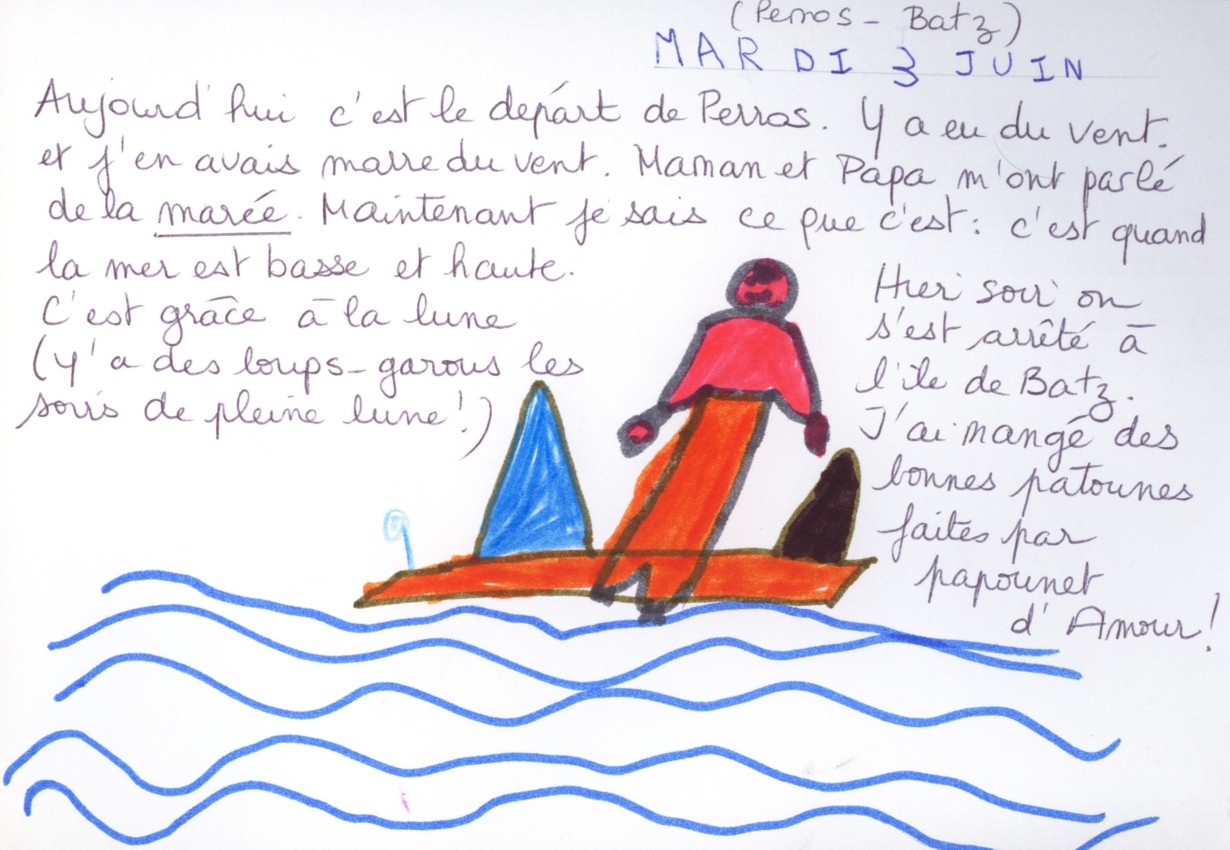 (Perros - Batz)
MARDI 3 JUIN
Aujourd'hui c'est le depárt de Perros. Y a eu du vent.
et j'en avais marre du vent. Maman et Papa m'ont parlé
de la marée. Maintenant je sais ce que c'est : c'est quand
la mer est basse et haute.
C'est grāce ā la lune
(y'a des loups-garous les
soirs de pleine lune !)
Hier soir on
s'est arrêté ā
l'île de Batz.
J'ai mangé des
bonnes patounes
faites par
papounet
d'Amour !